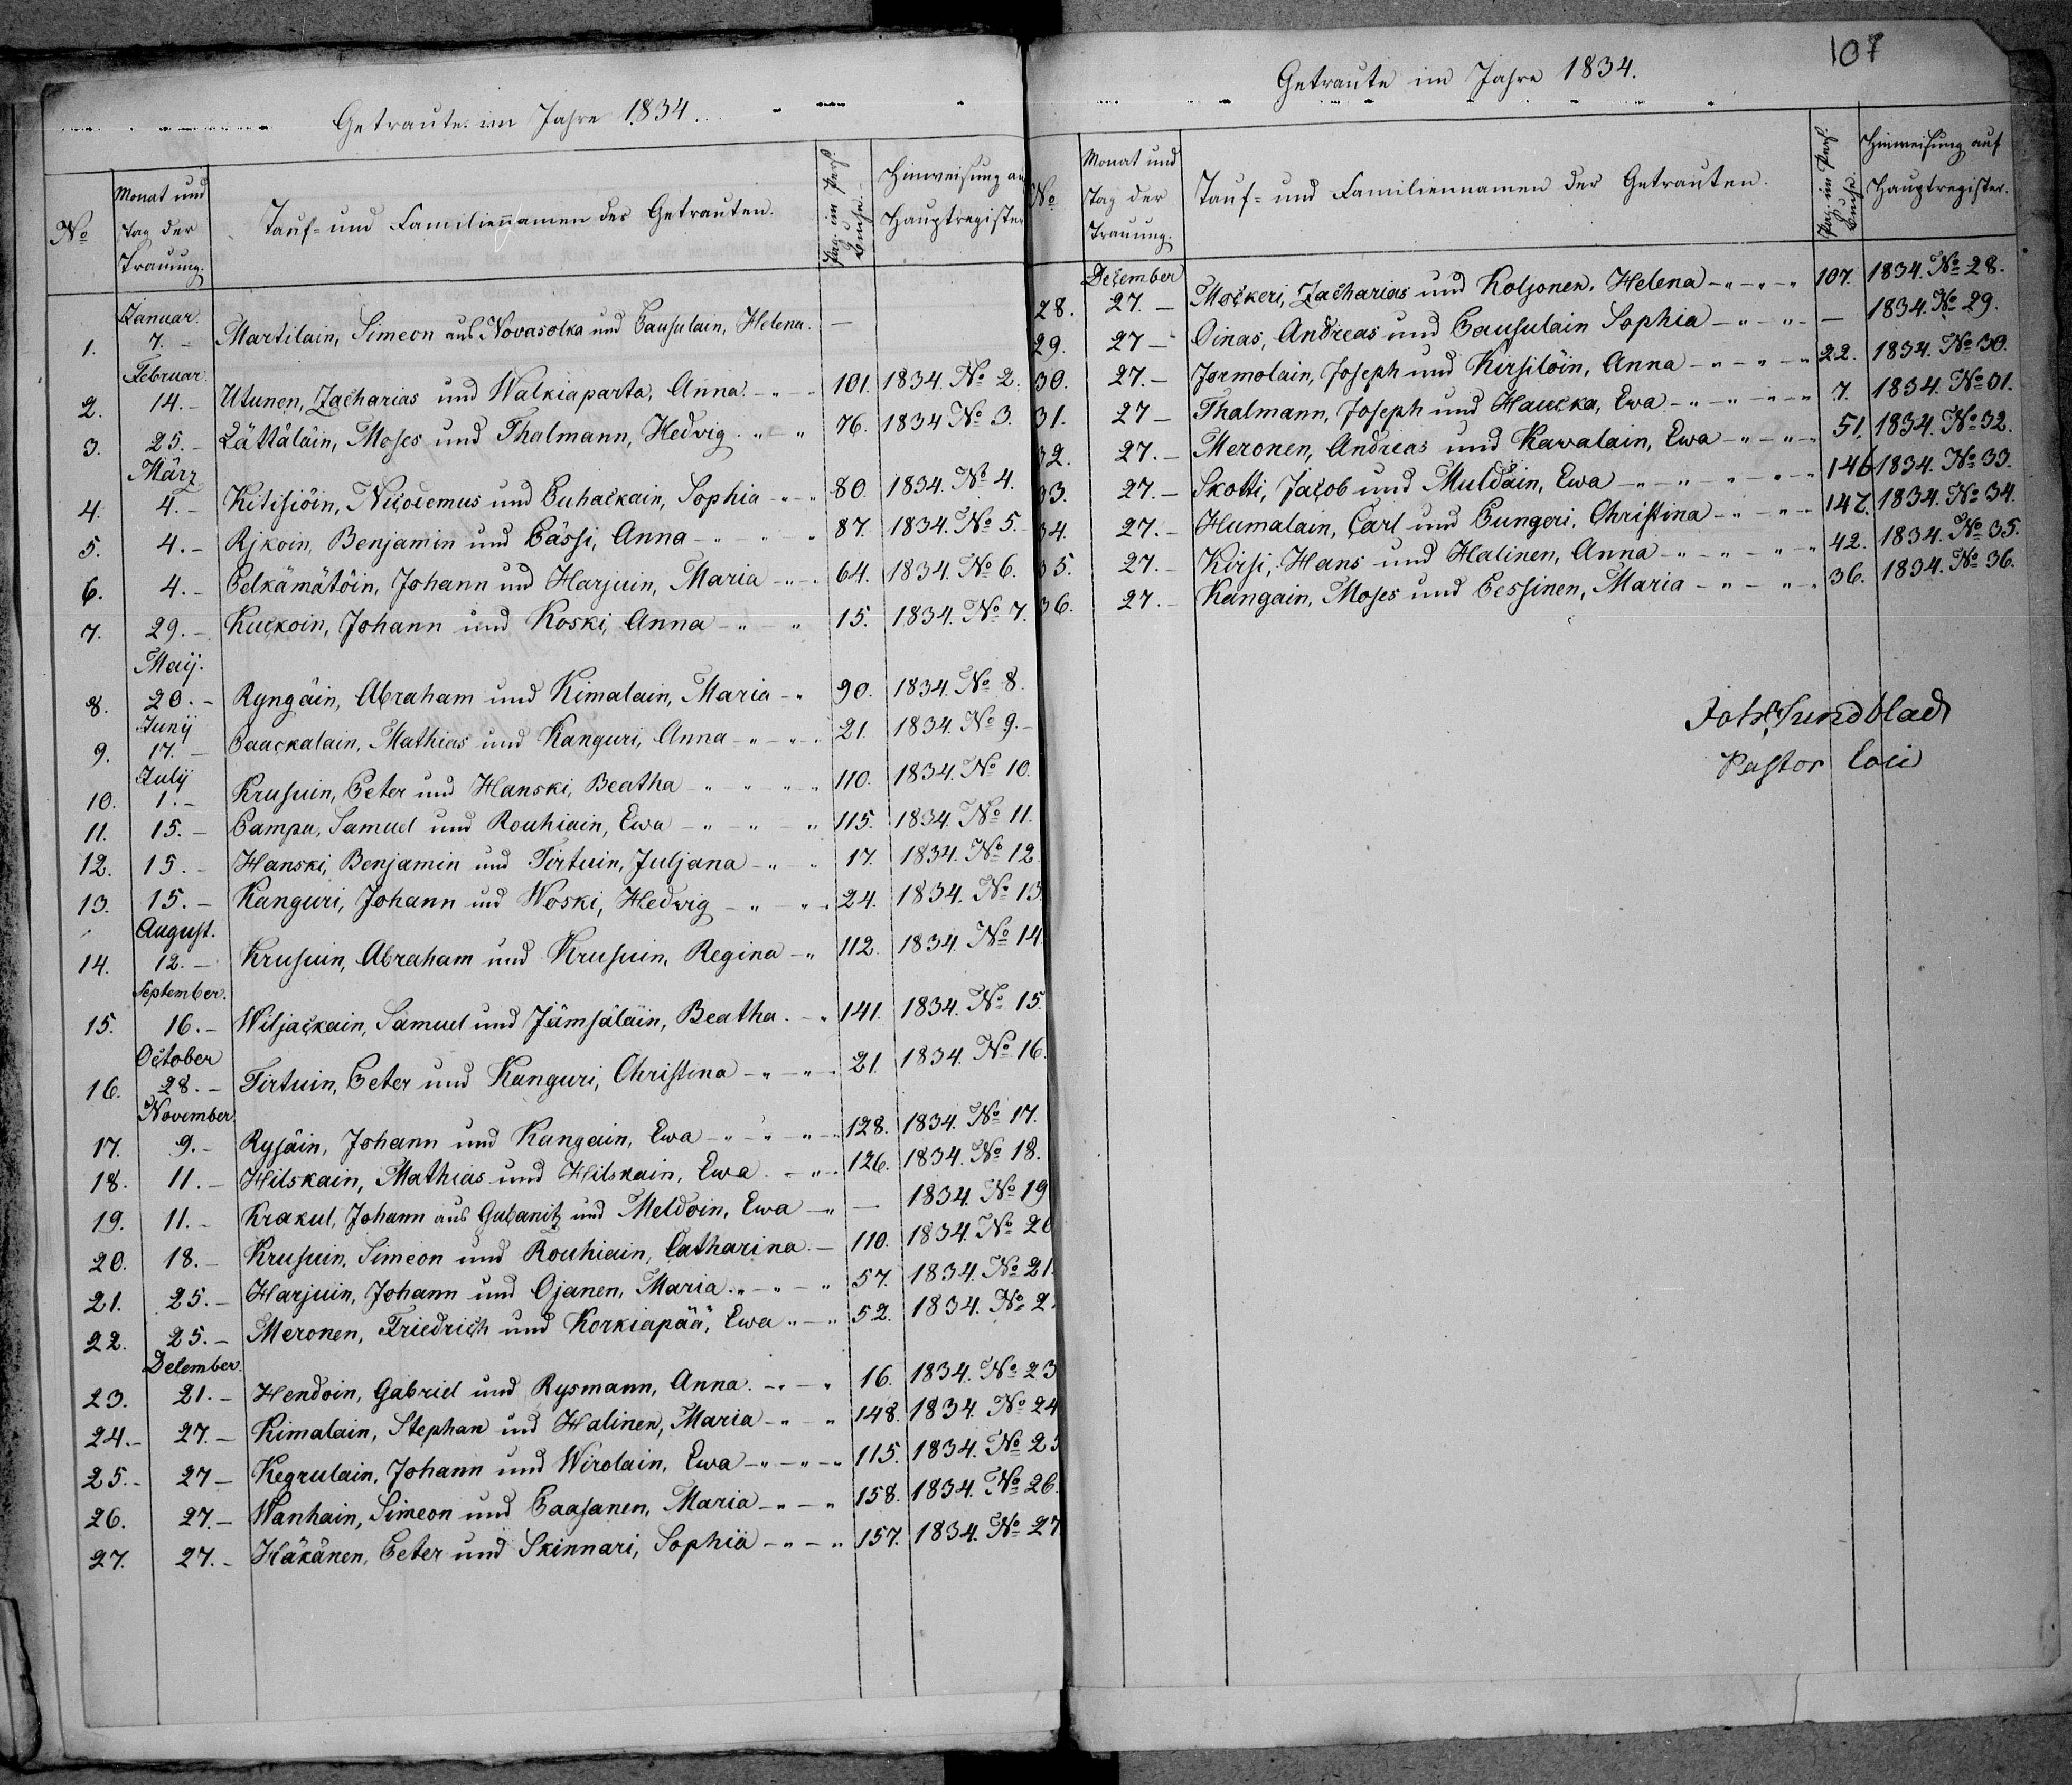 107
Getraute im Jahre 1834.
No Monat und Tag der Trauung. Tauf- und Familiennamen der Getrauten. Pag. im Pers. Buche. Hinweisung auf Hauptregister
Januar.
1. 7. – Martilain, Simeon aus Novasolka und Pausulain, Helena. —
Februar.
2. 14. – Utunen, Zacharias und Walkiaparta, Anna. 101. 1834. No 2.
3. 25. – Lättäläin, Moses und Thalmann, Hedwig. 76. 1834 No 3.
März
4. 4. – Kitisiöin, Nicodemus und Puhackain, Sophia 80. 1834. No 4.
5. 4. – Rjkoin, Benjamin und Pässi, Anna 87. 1834. No 5.
6. 4. – Pelkämätöin, Johann und Harjuin, Maria 64. 1834. No 6.
7. 29. – Kuckoin, Johann und Koski, Anna 15. 1834. No 7.
Maij.
8. 20. – Ryngäin, Abraham und Kimalain, Maria 90. 1834. No 8.
Junij
9. 17. – Paackalain, Mathias und Kanguri, Anna 21. 1834. No 9.
Julij
10. 1. – Krusuin, Peter und Hanski, Beatha 110. 1834. No 10.
11. 15. – Pampu, Samuel und Rouhiain, Ewa 115. 1834. No 11.
12. 15. – Hanski, Benjamin und Tirtuin, Juljana 17. 1834. No 12
13. 15. – Kanguri, Johann und Woski, Hedwig 24. 1834. No 13
August.
14. 12. – Krusuin, Abraham und Krusuin, Regina 112. 1834. No 14
September.
15. 16. – Wiljackain, Samuel und Jämsäläin, Beatha. 141. 1834. No 15.
October
16. 28. – Tirtuin, Peter und Kanguri, Christina 21. 1834. No 16.
November.
17. 9. – Rysäin, Johann und Kangain, Ewa 128. 1834. No 17.
18. 11. – Hilskain, Mathias und Hilskain, Ewa 126. 1834. No 18.
19. 11. – Krakul, Johann aus Gubanitz und Meldoin, Ewa — 1834. No 19
20. 18. – Krusuin, Simeon und Rouhiain, Catharina. 110. 1834. No 20
21. 25. – Harjuin, Johann und Ojanen, Maria. 57. 1834. No 21.
22. 25. – Meronen, Friedrich und Korkiapää, Ewa 52. 1834. No 2
December.
23. 21. – Hendoin, Gabriel und Rysmann, Anna. 16. 1834. No 23
24. 27. – Kimalain, Stephan und Halinen, Maria 148. 1834. No 24
25. 27 – Kegrulain, Johann und Wirolain, Ewa 115. 1834. No 25
26. 27. – Wanhain, Simeon und Paasanen, Maria 158. 1834. No 26.
27. 27. – Häkänen, Peter und Skinnari, Sophia 157. 1834. No 27
Getraute im Jahre 1834.
No Monat und Tag der Trauung. Tauf- und Familiennamen der Getrauten. Pag. im Pers. Buche. Hinweisung auf Hauptregister.
December
28. 27. – Mockeri, Zacharias und Koljonen, Helena 107. 1834. No 28.
29. 27 – Oinas, Andreas und Pausulain Sophia — 1834. No 29.
30. 27. – Jormolain, Joseph und Kirsilöin, Anna 22. 1834. No 30.
31. 27 – Thalmann, Joseph und Haucka, Ewa 7. 1834. No 31.
32. 27. – Meronen, Andreas und Kawalain, Ewa 51. 1834. No 32.
33. 27. – Skotti, Jacob und Muldäin, Ewa 146 1834. No 33.
34. 27. – Humalain, Carl und Pungeri, Christina 147. 1834. No 34.
35. 27. – Kirsi, Hans und Halinen, Anna 42. 1834. No 35.
36. 27. – Kangain, Moses und Pessinen, Maria 36. 1834. No 36.
Joh. Sundblad
Pastor loci